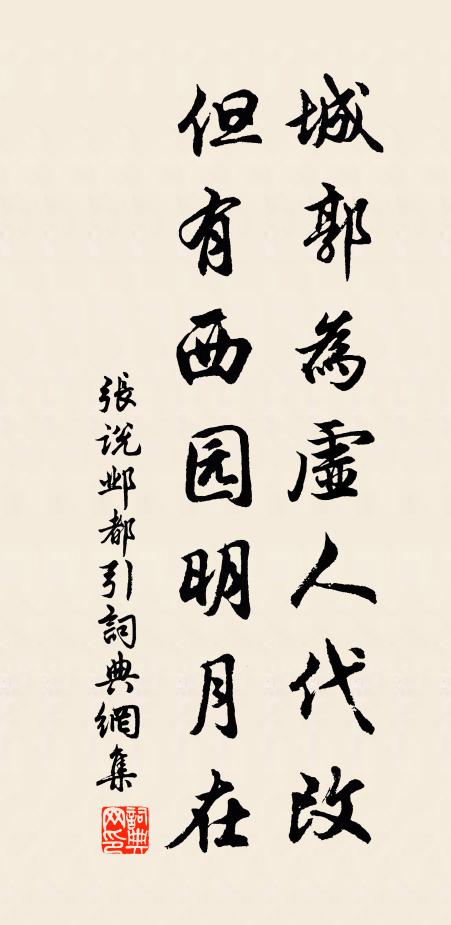 城郭為虛人代改
但有西园明月在
張说邺都引詞典網集
詞典网印